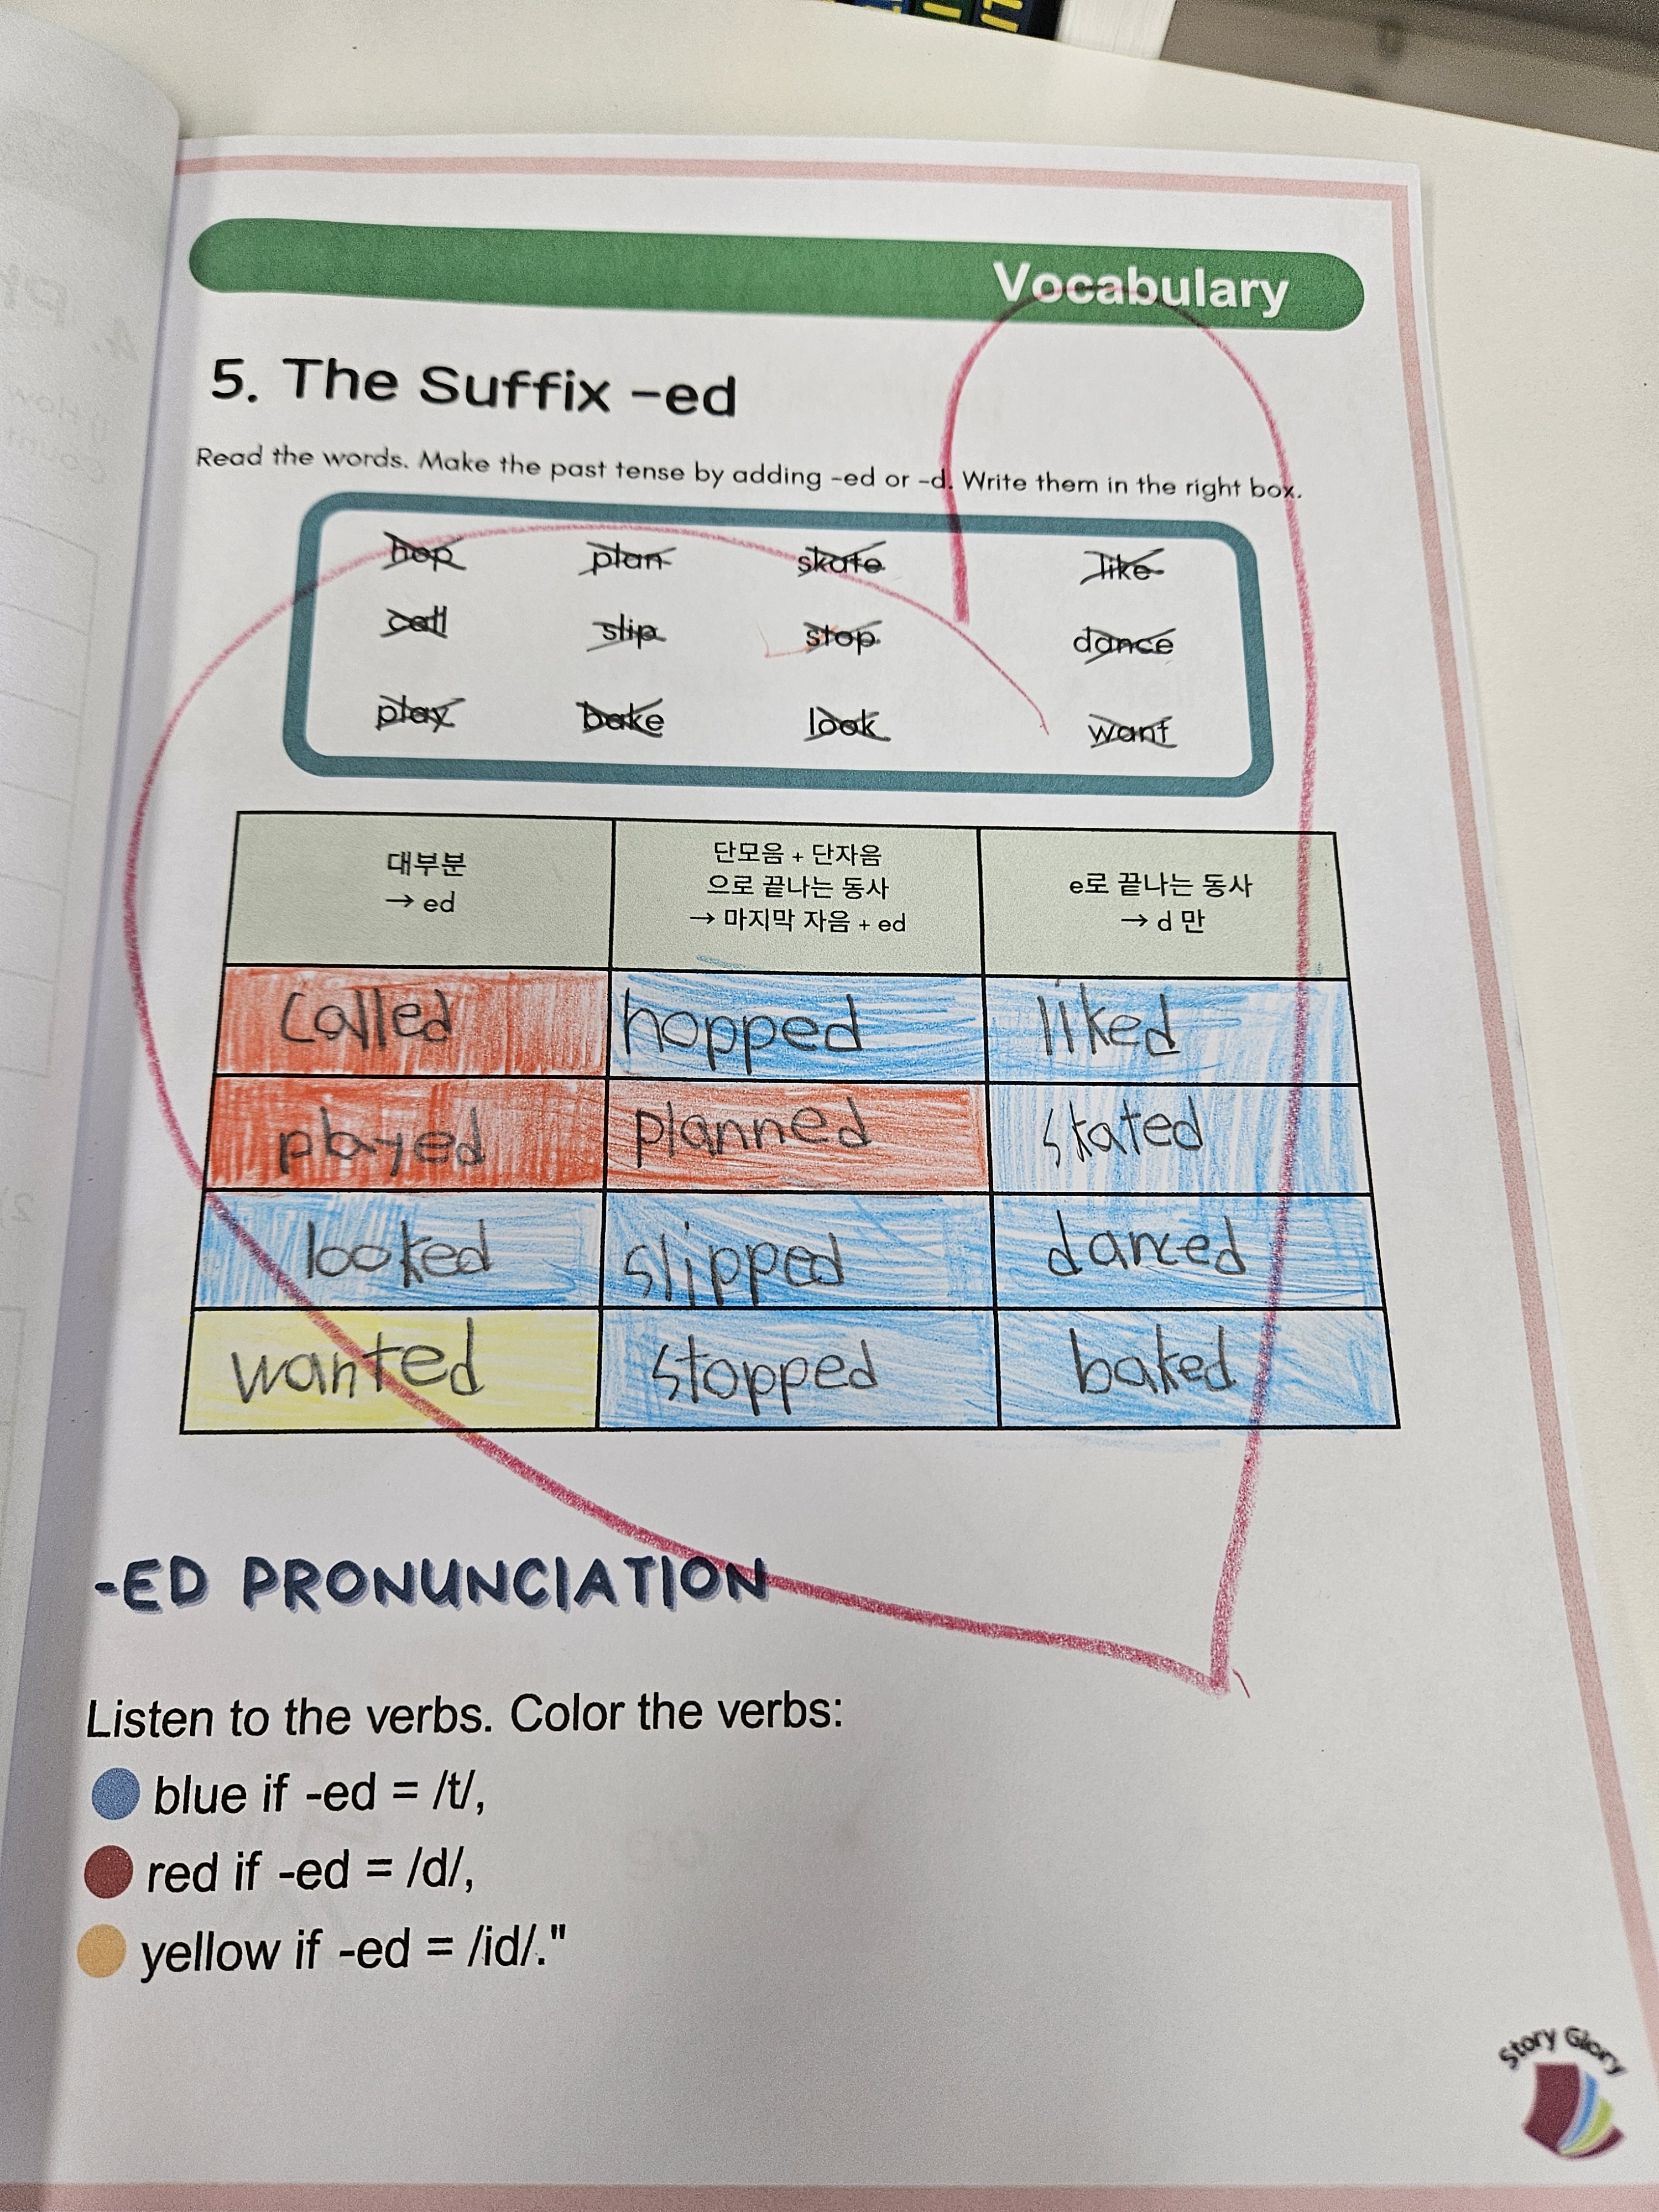 Vocabulary
5. The Suffix -ed
Read the words. Make the past tense by adding -ed or -d. Write them in the right box.
hop plan skate like
call slip stop dance
play bake look want
대부분
→ ed
단모음 + 단자음
으로 끝나는 동사
→ 마지막 자음 + ed
e로 끝나는 동사
→ d 만
called hopped liked
played planned skated
looked slipped danced
wanted stopped baked
-ED PRONUNCIATION
Listen to the verbs. Color the verbs:
blue if -ed = /t/,
red if -ed = /d/,
yellow if -ed = /id/."
Story Glory